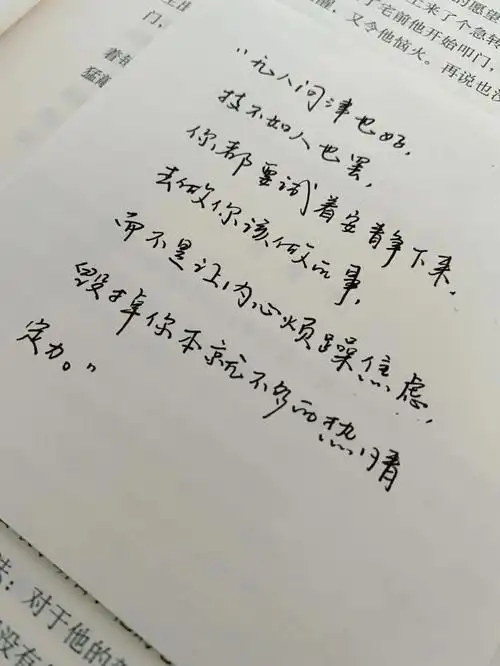 的愿望
上来了个急转
了宅前他开始叩门，
醒，又令他恼火。再说也没
门，
着
猛
"无人问津也好，
技不如人也罢，
你都要试着安静下来，
去做你该做的事，
而不是让内心烦躁焦虑，
毁掉你本就不多的热情
定力。"
法：对于他的
没有